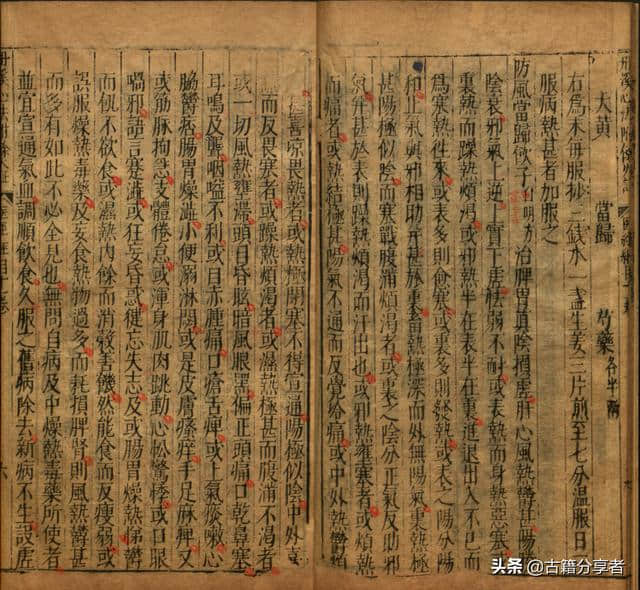 大黃 當歸 芍藥各半兩
右為末每服抄三錢水一盞生姜三片煎至七分溫服日
服病熱甚者加服之
防風當歸飲子宣明方 治脾胃真陰損虛肝心風熱鬱甚陽
陰衰邪氣上逆上實下虛怯弱不耐或表熱而身熱惡寒
裏熱而躁熱煩渴或邪熱半在表半在裏進退出入不已而
為寒熱往來或表多則飲寒或裏多則發熱或表之陽分陽
和正氣與邪相助并甚於裏蓄熱極深而外無陽氣裏熱極
甚陽極似陰而寒戰腹滿煩渴者或裏之陰分正氣反助邪
氣并甚於表則躁煩渴而汗出也或邪熱壅塞者或煩熱
而痛者或熱結極甚陽氣不通而反覺冷痛或中外熱鬱
喜涼畏熱者或熱極閉塞不得宣通陽極似陰中外喜
而反畏寒者或躁熱煩渴者或濕熱極甚而腹滿不渴者
或一切風熱壅滯頭目昏眩暗風眼黑偏正頭痛口乾鼻塞
耳鳴及聾咽嗌不利或目赤腫痛口瘡舌痺或上氣痰嗽心
脇鬱痞腸胃燥澁小便溺淋閟或是皮膚瘙痒手足麻痺又
或筋脉拘急支體倦怠或渾身肌肉跳動心忪驚悸或口眼
喎邪語言蹇澁或狂妄昏惑徤忘失志及或腸胃燥熱怫鬱
而飢不欲食或濕熱內餘而消穀善饑然能食而反瘦弱或
誤服燥熱毒藥及妄食熱物過多而耗損脾腎則風熱鬱甚
而多有如此不必全見也無問自病及中燥熱毒藥所使者
並宜宣通氣血調順飲食久服之舊病除去新病不生設虛
头条 @古籍分享者